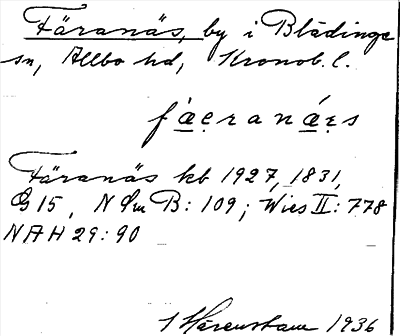 Färanäs, by i Blädinge
sn, Allbo hd, Kronob. l.
fa̲e̲ranǽ̲r̲s
Färanäs kb 1927, 1831,
G 15, N Sm B: 109; Wies II: 778
NAH 29: 90
Härenstam 1936